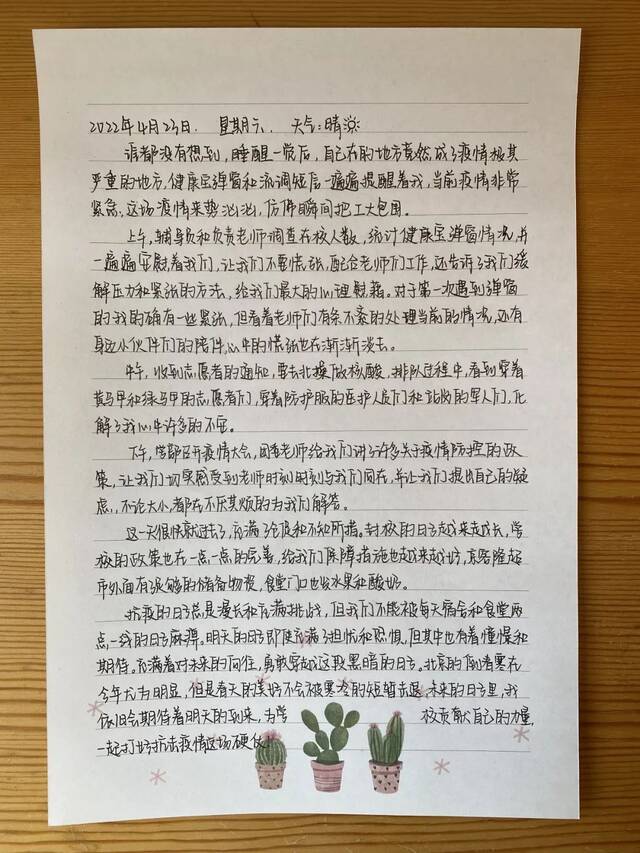 2022年4月23日. 星期六. 天气:晴
谁都没有想到,睡醒一觉后,自己在的地方竟然成了疫情极其
严重的地方,健康宝弹窗和流调短信一遍遍提醒着我,当前疫情非常
紧急.这场疫情来势汹汹,仿佛瞬间把工大包围。
上午,辅导员和负责老师调查在校人数,统计健康宝弹窗情况,并
一遍遍安慰着我们,让我们不要慌张,配合老师们工作,还告诉了我们缓
解压力和紧张的方法,给我们最大的心理慰藉。对于第一次遇到弹窗
的我的确有一些紧张,但看着老师们有条不紊的处理当前的情况,还有
身边小伙伴们的陪伴,心中的慌张也在渐渐淡去。
中午,收到志愿者的通知,要去北操做核酸,排队过程中,看到穿着
黄马甲和绿马甲的志愿者们,穿着防护服的医护人员们和站岗的军人们,化
解了我心中许多的不安。
下午,学部召开疫情大会,老师给我们讲了许多关于疫情防控的政
策,让我们切实感受到老师时刻时刻与我们同在,并让我们提出自己的疑
虑,不论大小,都在不厌其烦的为我们解答。
这一天很快就过去了,充满了仓促和不知所措。封校的日子越来越长,学
校的政策也在一点一点的完善,给我们保障措施也越来越好,京客隆超
市外面有足够的储备物资,食堂门口也发水果和酸奶。
抗疫的日子总是漫长和充满挑战,但我们不能被每天宿舍和食堂两
点一线的日子麻痹。明天的日子即使充满了担忧和恐惧,但其中也有着憧憬和
期待。充满着对未来的向往,勇敢穿越这段黑暗的日子。北京的倒春寒在
今年尤为明显,但是春天的美好不会被寒冷的短暂击退.未来的日子里,我
依旧会期待着明天的到来,为学 校贡献自己的力量,
一起打好抗击疫情这场硬仗!